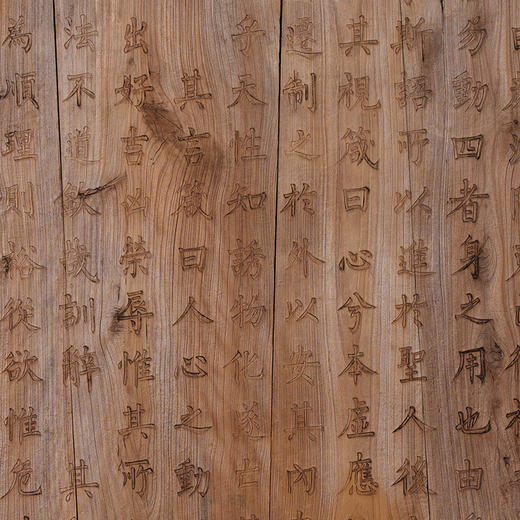 勿動四者身之用也由
斯語所以進於聖人後
其視箴曰心兮本虛應
遷制之於外以安其內
乎天性知誘物化遂亡
其言箴曰人心之動
出好吉凶榮辱惟其所
法不道欽哉訓辭 其
為順理則裕從欲惟危